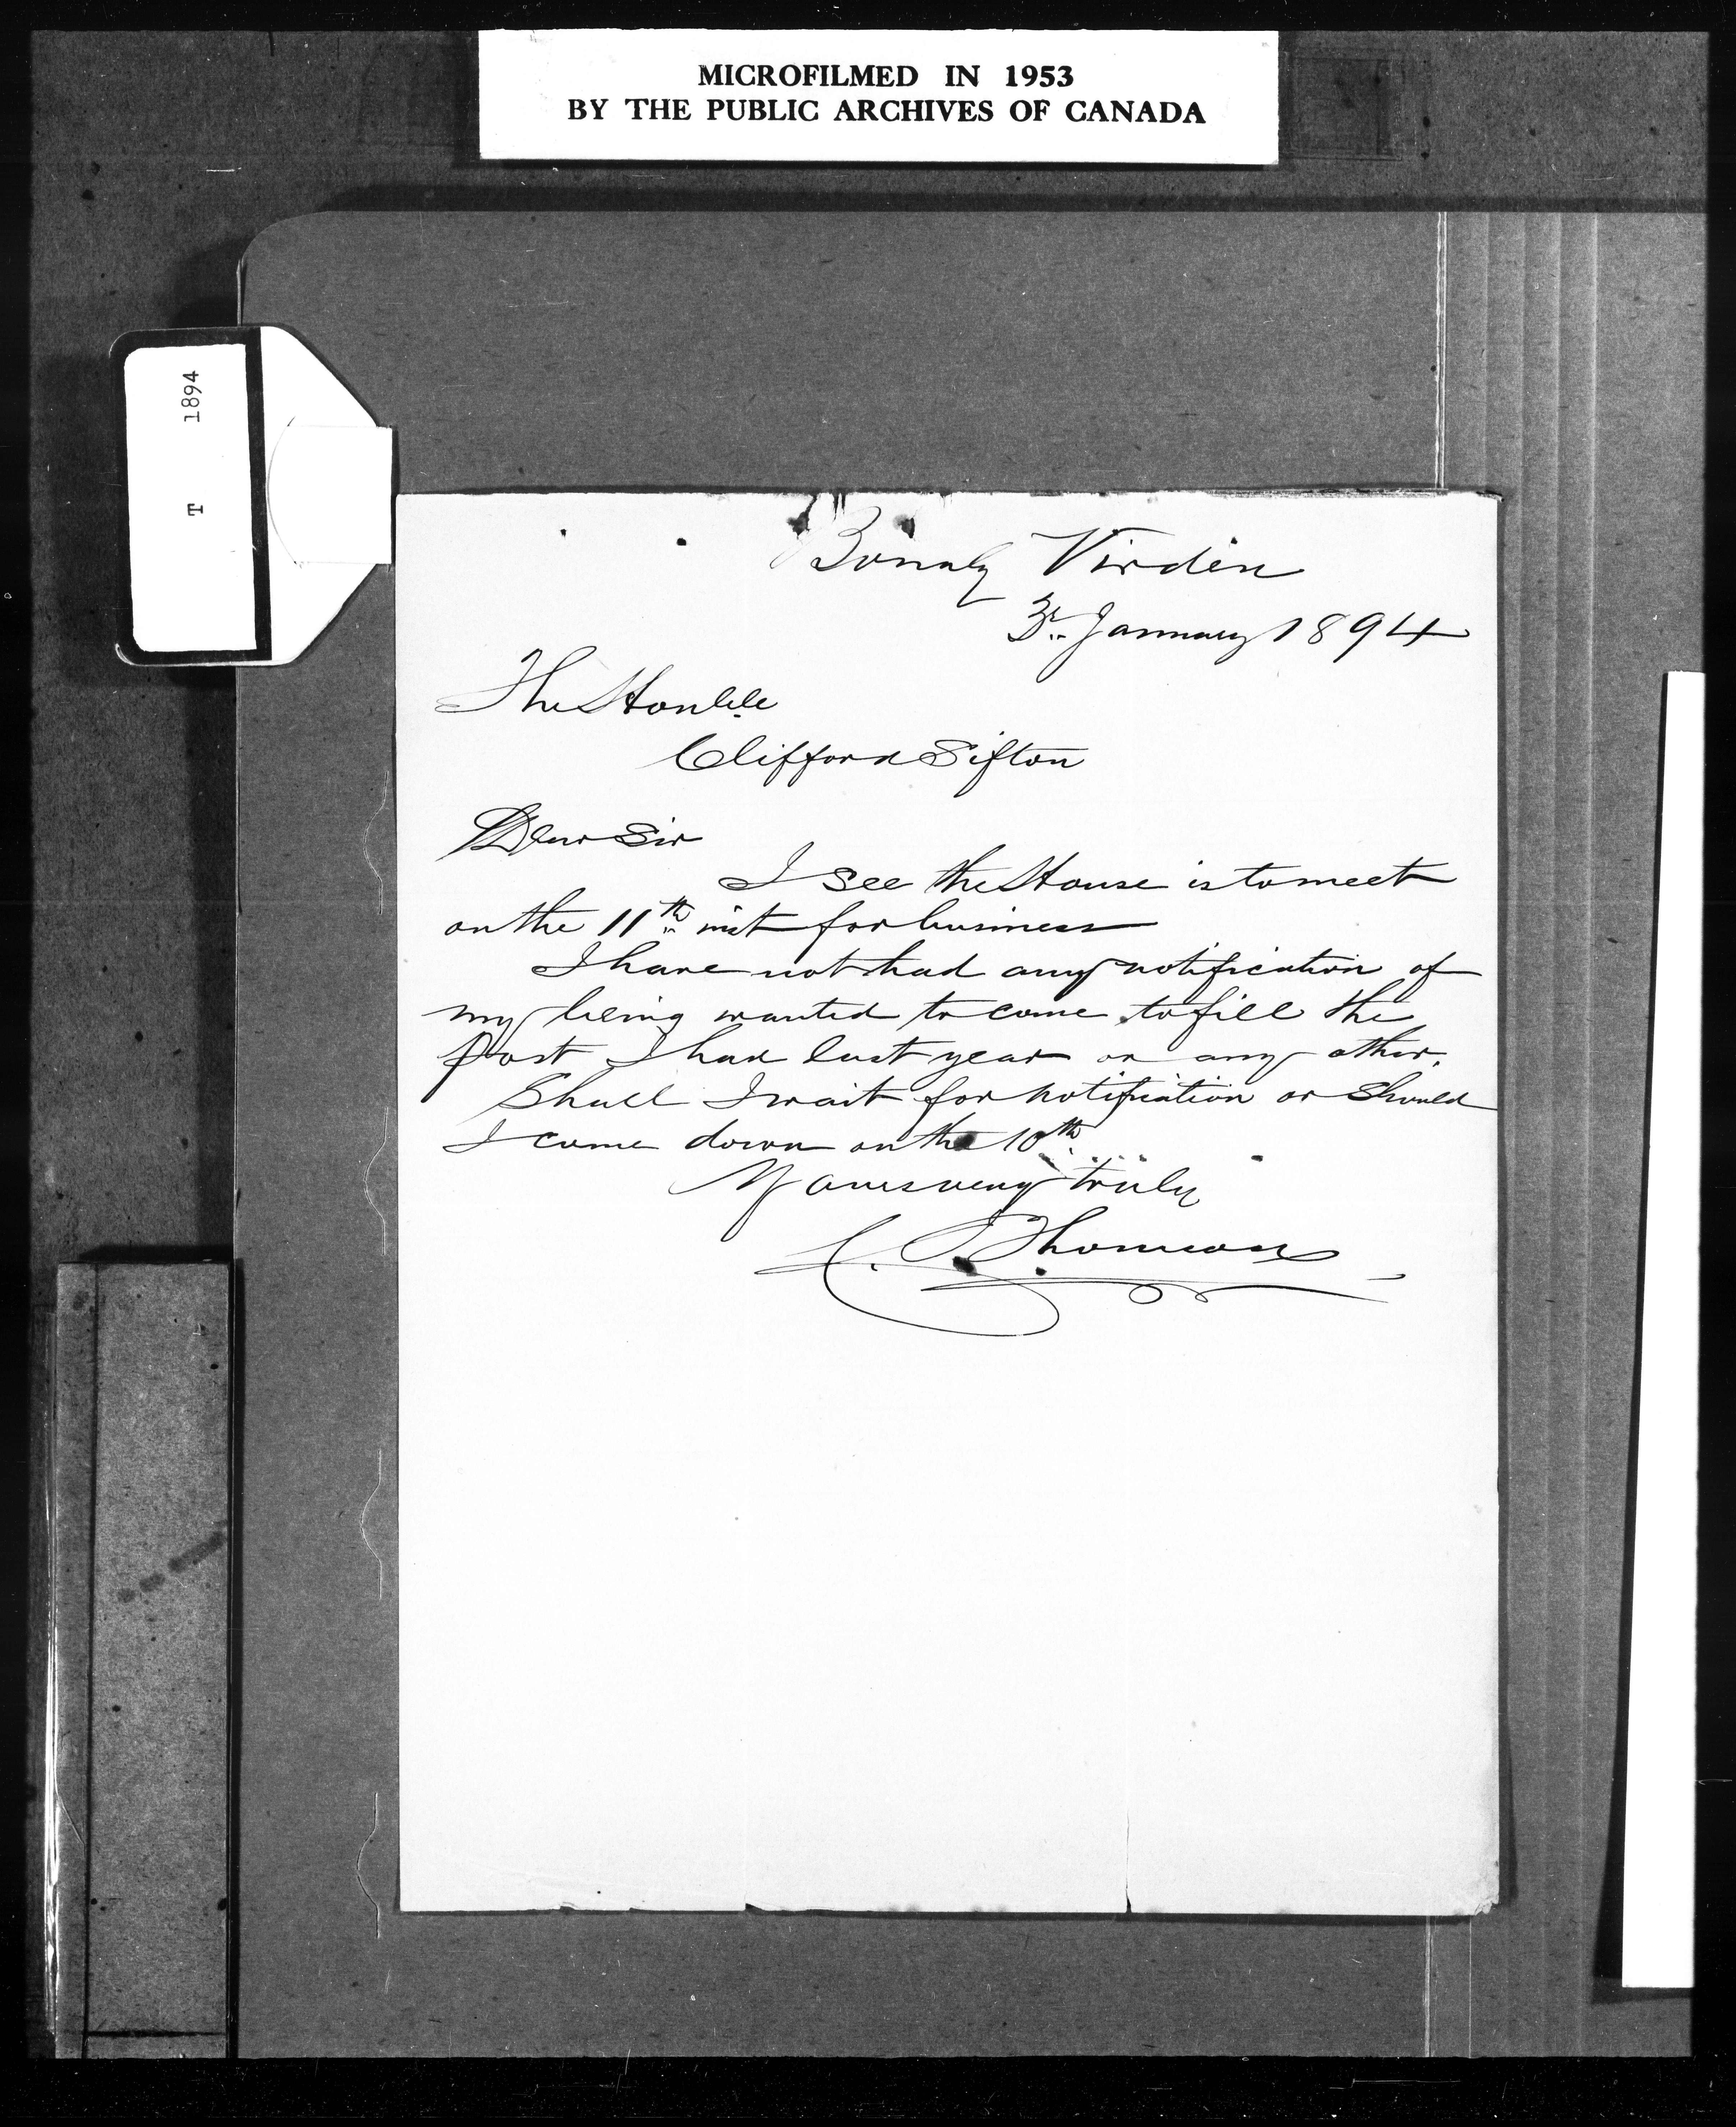 MICROFILMED IN 1953
BY THE PUBLIC ARCHIVES OF CANADA
T 1894
Bonaly Virden
3r. January 1894
The Honble
Clifford Sifton
Dear Sir
I see the House is to meet
on the 11th inst for business
I have not had any notification of
my being wanted to come to fill the
post I had last year or any other.
Shall I wait for notification or should
I come down on the 10th.
Yours very truly
C. J. Thomson